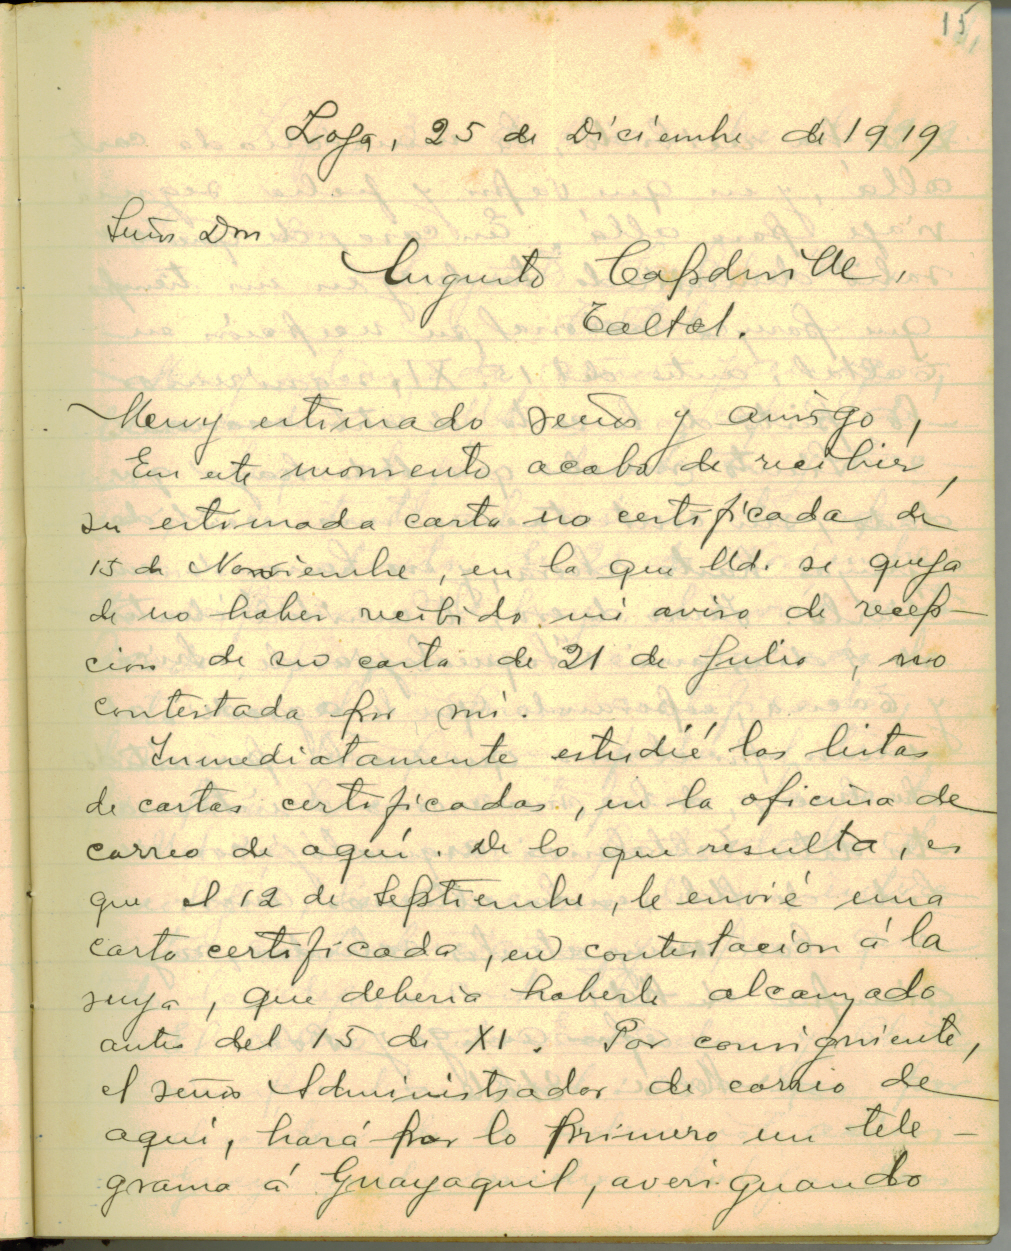 15,
Loja, 25 de Diciembre de 1919
Señor Don
Augusto Capdeville,
Taltal.
Muy estimado señor y amigo,
En este momento acabo de recibir,
su estimada carta no certificada de
15 de Noviembre, en la que Ud. se queja
de no haber recibido mi aviso de recep-
cion de su carta de 21 de Julio, no
contestada por mi.
Inmediatamente estudié las listas
de cartas certificadas, en la oficina de
correo de aquí. De lo que resulta, es
que el 12 de Septiembre, le envié una
carta certificada, en contestacion á la
suya, que deberia haberle alcanzado
antes del 15 de XI. Por consiguiente,
el señor Administrador de correo de
aquí, hará por lo primero un tele-
grama á Guayaquil, averiguando